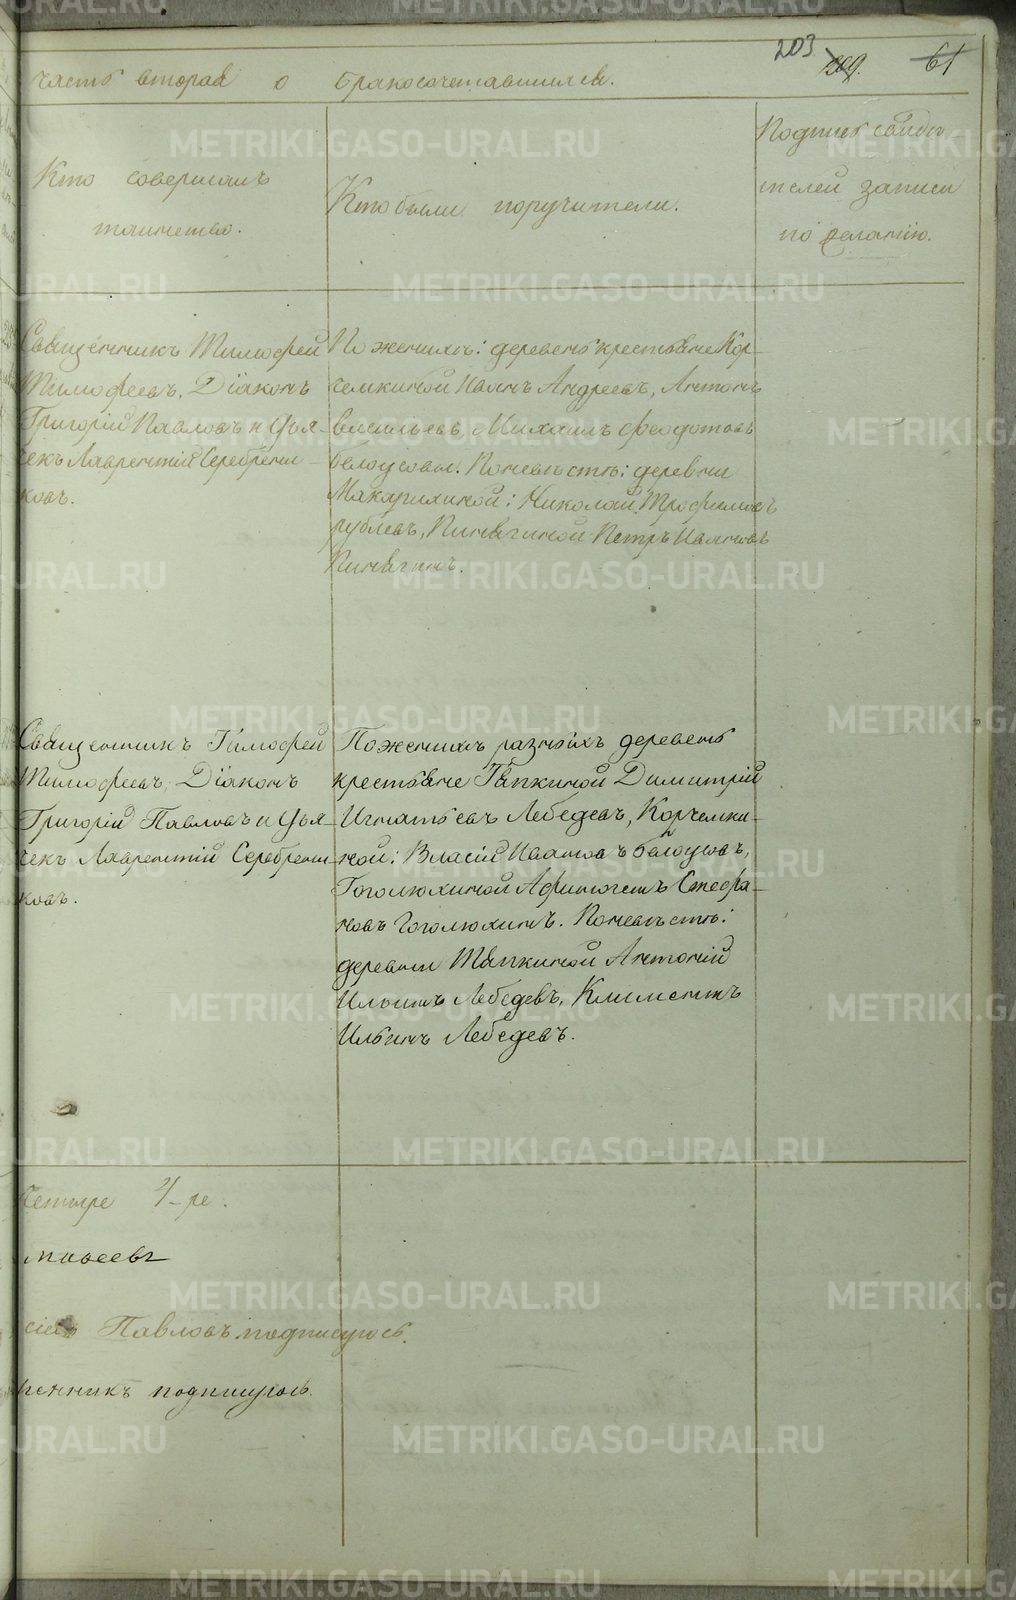 203 209. 61
часть вторая о бракосочетавшихся.
Кто совершалъ
таинство.
Кто были поручители.
Подпись свиде-
телей записи
по желанію.
Священникъ Тимофей
Тимофеевъ, Діаконъ
Григорій Павловъ и Дья-
чекъ Лаврентій Серебрени-
ковъ.
По женихѣ: деревень крестьяне Кор-
чемкиной Иванъ Андреевъ, Антонъ
Васильевъ, Михаилъ Феодотовъ
Белоусовы. По невѣстѣ: деревни
Макарихиной: Николай Трофимовъ
Рублевъ, Пинягиной Петръ Ивановъ
Пинягинъ.
Священникъ Тимофей
Тимофеевъ, Діаконъ
Григорій Павловъ и Дья-
чекъ Лаврентій Серебрени-
ковъ.
По женихѣ разныхъ деревень
крестьяне Тяпкиной Димитрій
Игнатьевъ Лебедевъ, Корчемки-
ной: Власій Ивановъ Белоусовъ,
Гоголюхиной Афиногенъ Стефа-
новъ Гоголюхинъ. По невѣстѣ:
деревни Тяпкиной Антоній
Ильинъ Лебедевъ, Климентъ
Ильинъ Лебедевъ.
Четыре 4-ре.
Павловъ подписуюсь.
подпишуюсь.
METRIKI.GASO-URAL.RU